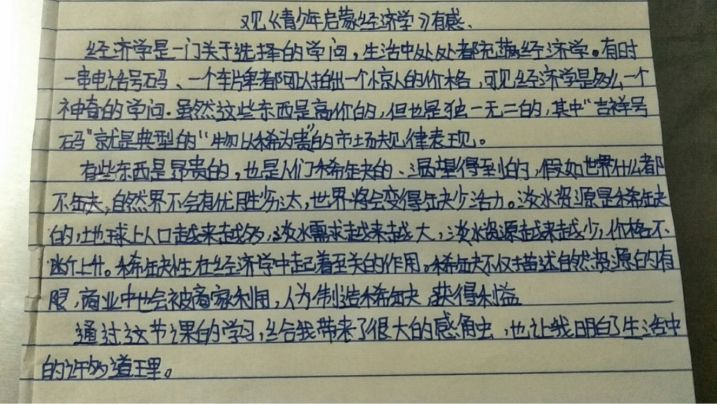 观《青少年启蒙经济学》有感.
经济学是一门关于选择的学问，生活中处处都充满经济学。有时
一串电话号码、一个车牌都可以拍出一个惊人的价格，可见经济学是多么一个
神奇的学问。虽然这些东西是高价的，但也是独一无二的，其中“吉祥号
码”就是典型的“物以稀为贵”的市场规律表现。
有些东西是昂贵的，也是人们稀缺的、渴望得到的，假如世界什么都
不缺，自然界不会有优胜劣汰，世界将会变得缺少活力。淡水资源是稀缺
的，地球上人口越来越多，淡水需求越来越大，淡水资源越来越少，价格不
断上升。稀缺性在经济学中起着至关的作用。稀缺不仅描述自然资源的有
限，商业中也会被商家利用，人为制造稀缺，获得利益
通过这节课的学习，给我带来了很大的感触，也让我明白了生活中
的许多道理。